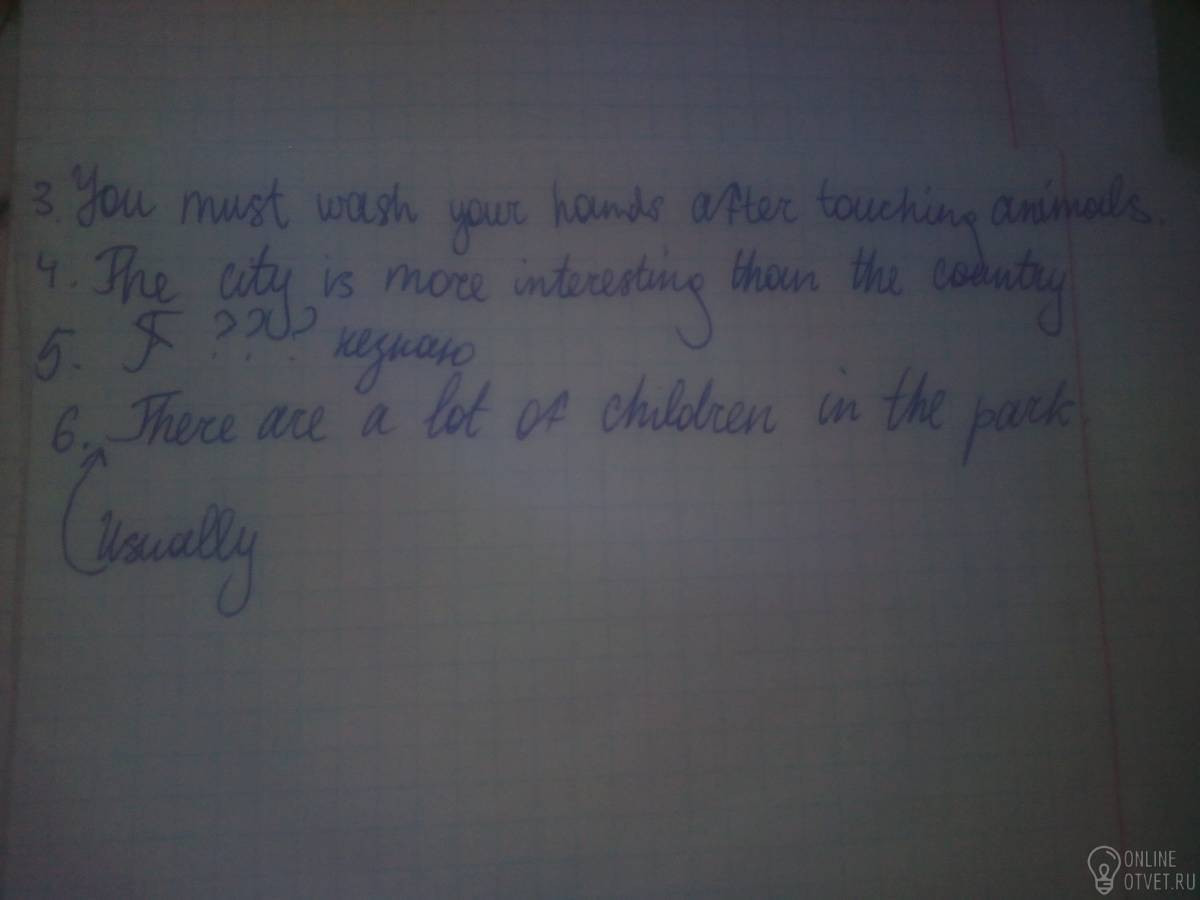 3. You must wash your hands after touching animals.
4. The city is more interesting than the country
5. ??? незнаю
6. There are a lot of children in the park
Usually
ONLINE
OTVET.RU